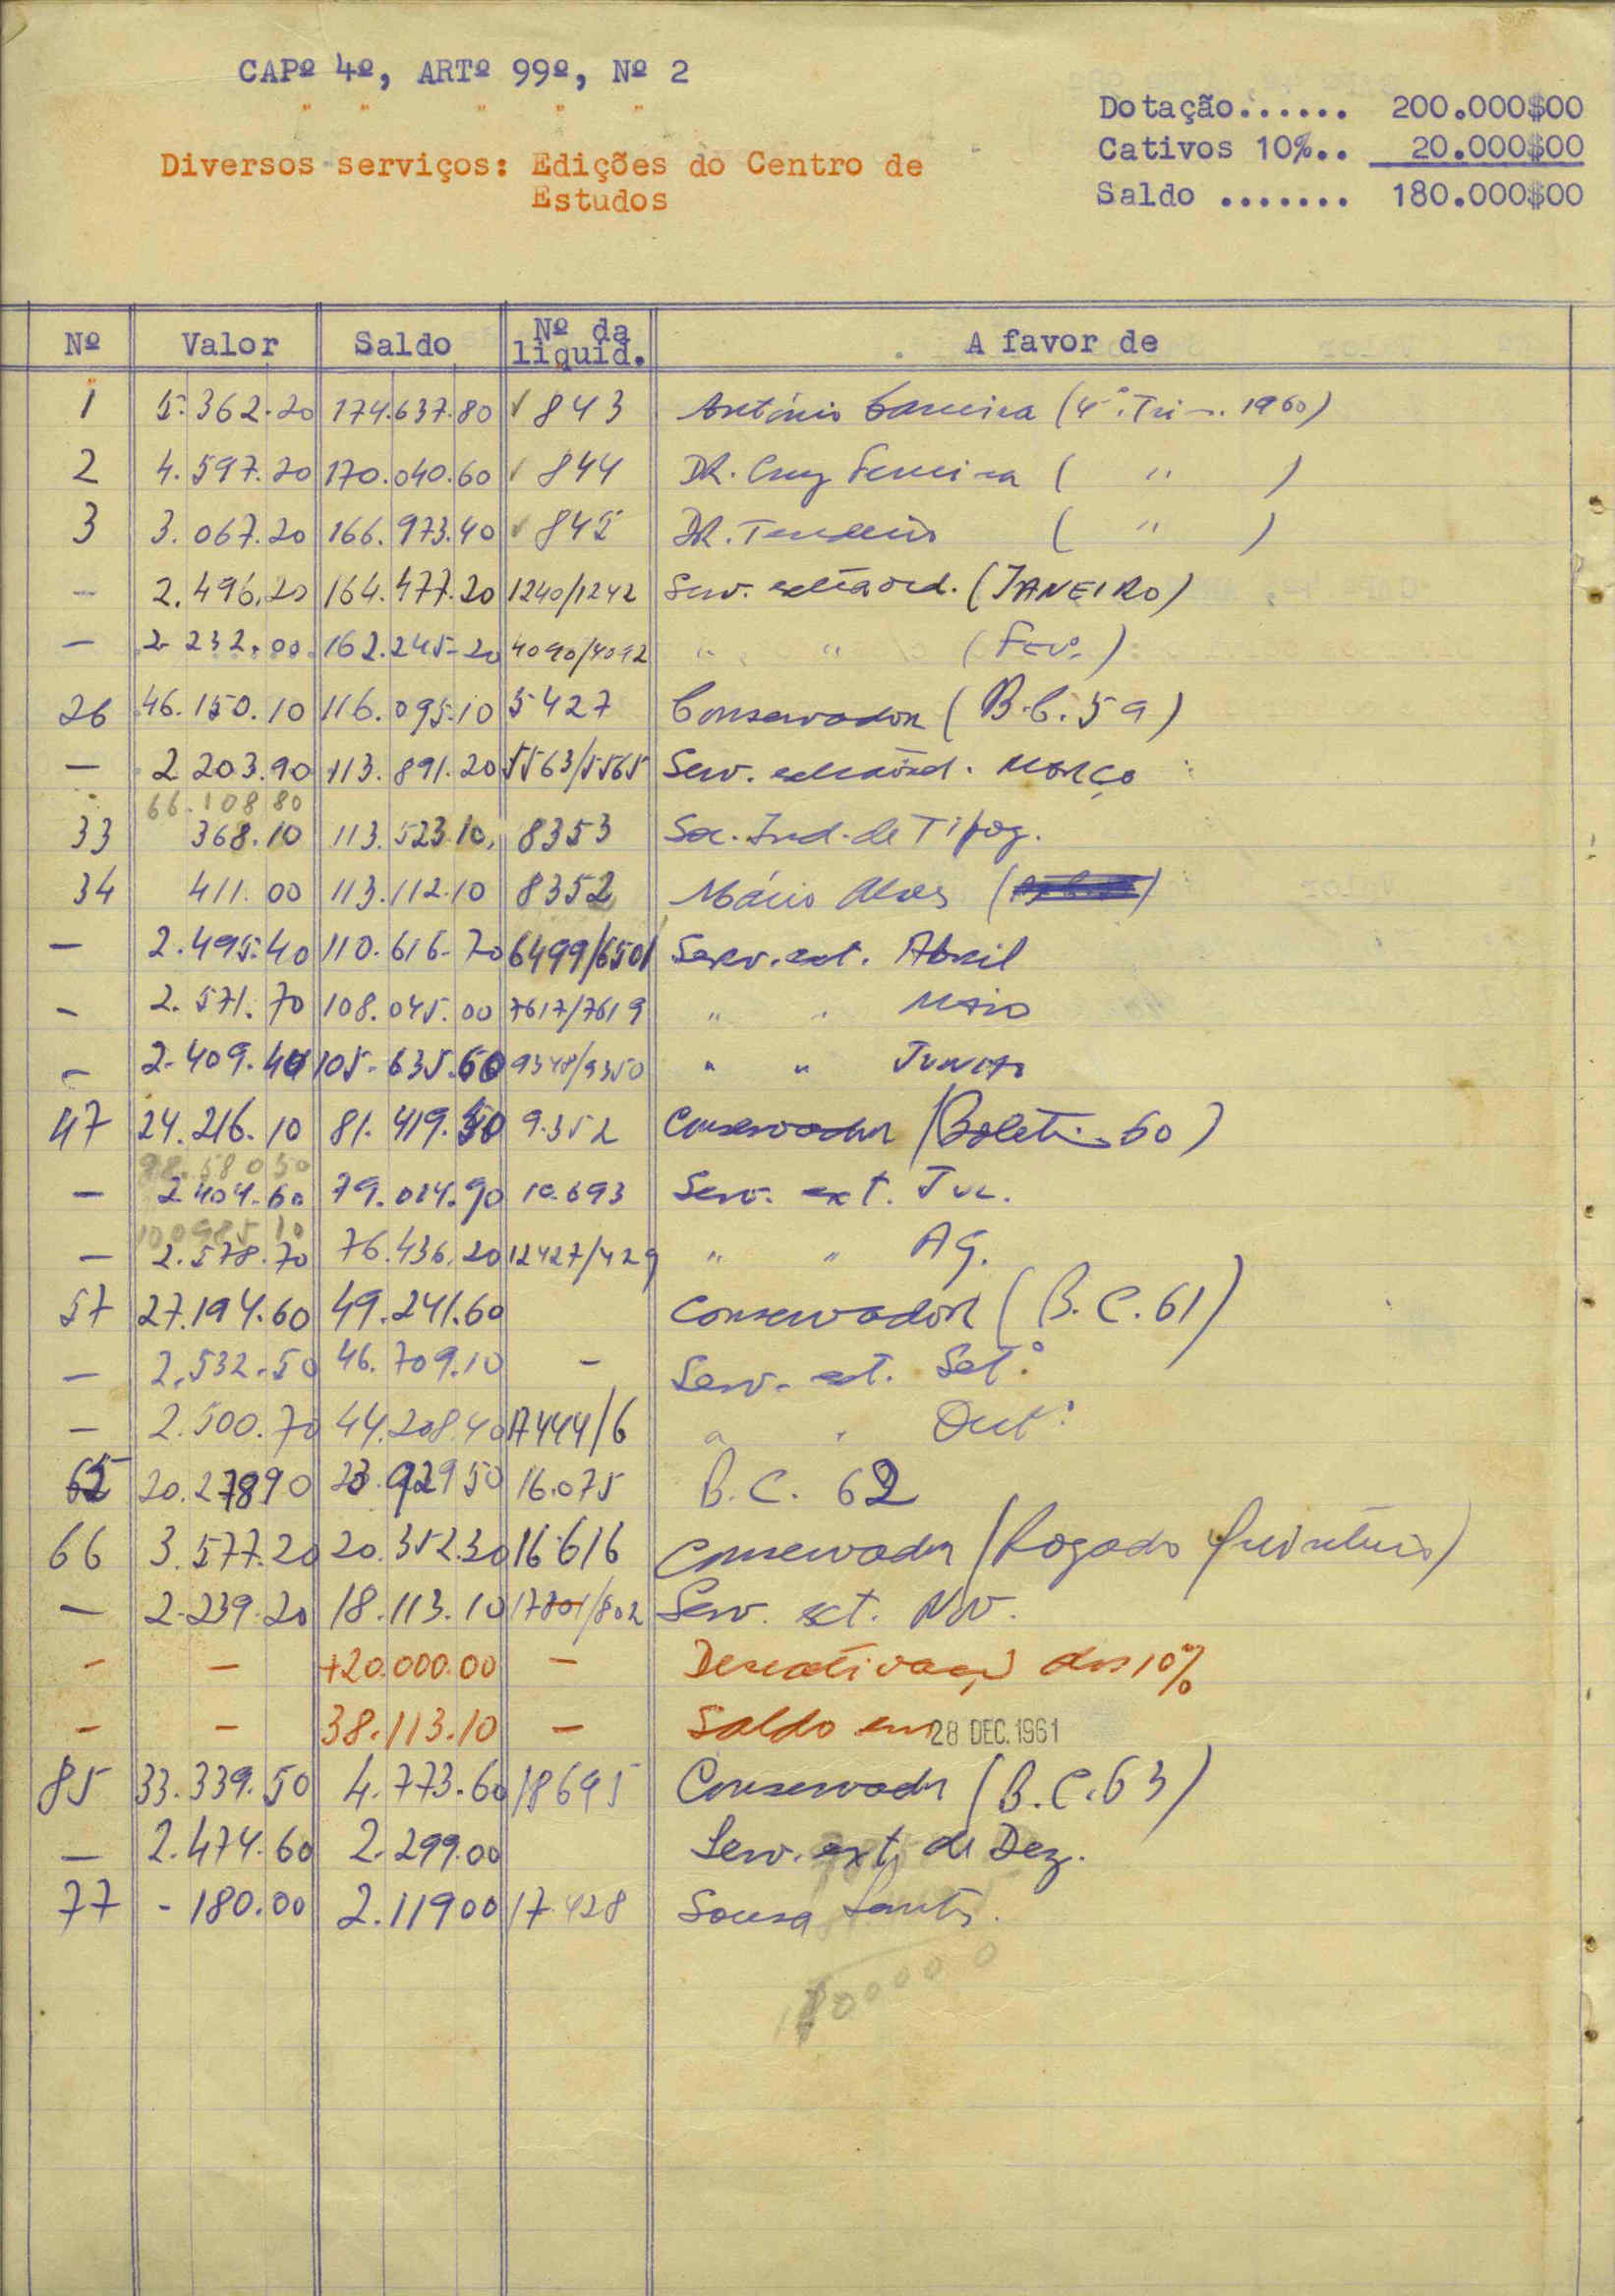 CAPº 4º, ARTº 99º, Nº 2
" " " " "
Dotação...... 200.000$00
Cativos 10%.. 20.000$00
Saldo ....... 180.000$00
Diversos serviços: Edições do Centro de
Estudos
Nº Valor Saldo Nº da liquid. A favor de
1 5.362.20 174.637.80 √ 843 António Carreira (4º. Trim. 1960)
2 4.597.20 170.040.60 √ 844 DR. Cruz Ferreira ( " )
3 3.067.20 166.973.40 √ 845 DR. Tendeiro ( " )
— 2.496.20 164.477.20 1240/1242 Serv. extraord. (JANEIRO)
— 2.232.00 162.245.20 4090/4092 " " (Fevº.)
26 46.150.10 116.095.10 5427 Conservador (B.C. 59)
— 2 203.90 113.891.20 5563/5565 Serv. extraord. MARÇO
66.108 80
33 368.10 113.523.10 8353 Soc. Ind. de Tipog.
34 411.00 113.112.10 8352 Mário Alves
— 2.495.40 110.616.70 6499/6501 Serv. ext. Abril
— 2.571.70 108.045.00 7617/7619 " " MAIO
— 2.409.40 105.635.60 9348/9350 " " Junho
47 24.216.10 81.419.50 9.352 Conservador (Boletim 60)
98.580 50
— 2 404.60 79.014.90 10.693 Serv. ext. Jul.
100985 10
— 2.578.70 76.436.20 12427/429 " " AG.
57 27.194.60 49.241.60 Conservador (B.C. 61)
— 2.532.50 46.709.10 — Serv. ext. Setº.
— 2.500.70 44.208.40 17444/6 " " Outº.
65 20.278 90 23.929 50 16.075 B.C. 62
66 3.577.20 20.352.30 16.616 Conservador (Rogado Quintino)
— 2.239.20 18.113.10 17801/802 Serv. ext. Nov.
— — +20.000.00 — Descativação dos 10%
— — 38.113.10 — Saldo em 28 DEC. 1961
85 33.339.50 4.773.60 18695 Conservador (B.C. 63)
— 2.474.60 2.299.00 Serv. ext. de Dez.
77 - 180.00 2.119 00 17.428 Sousa Santos.